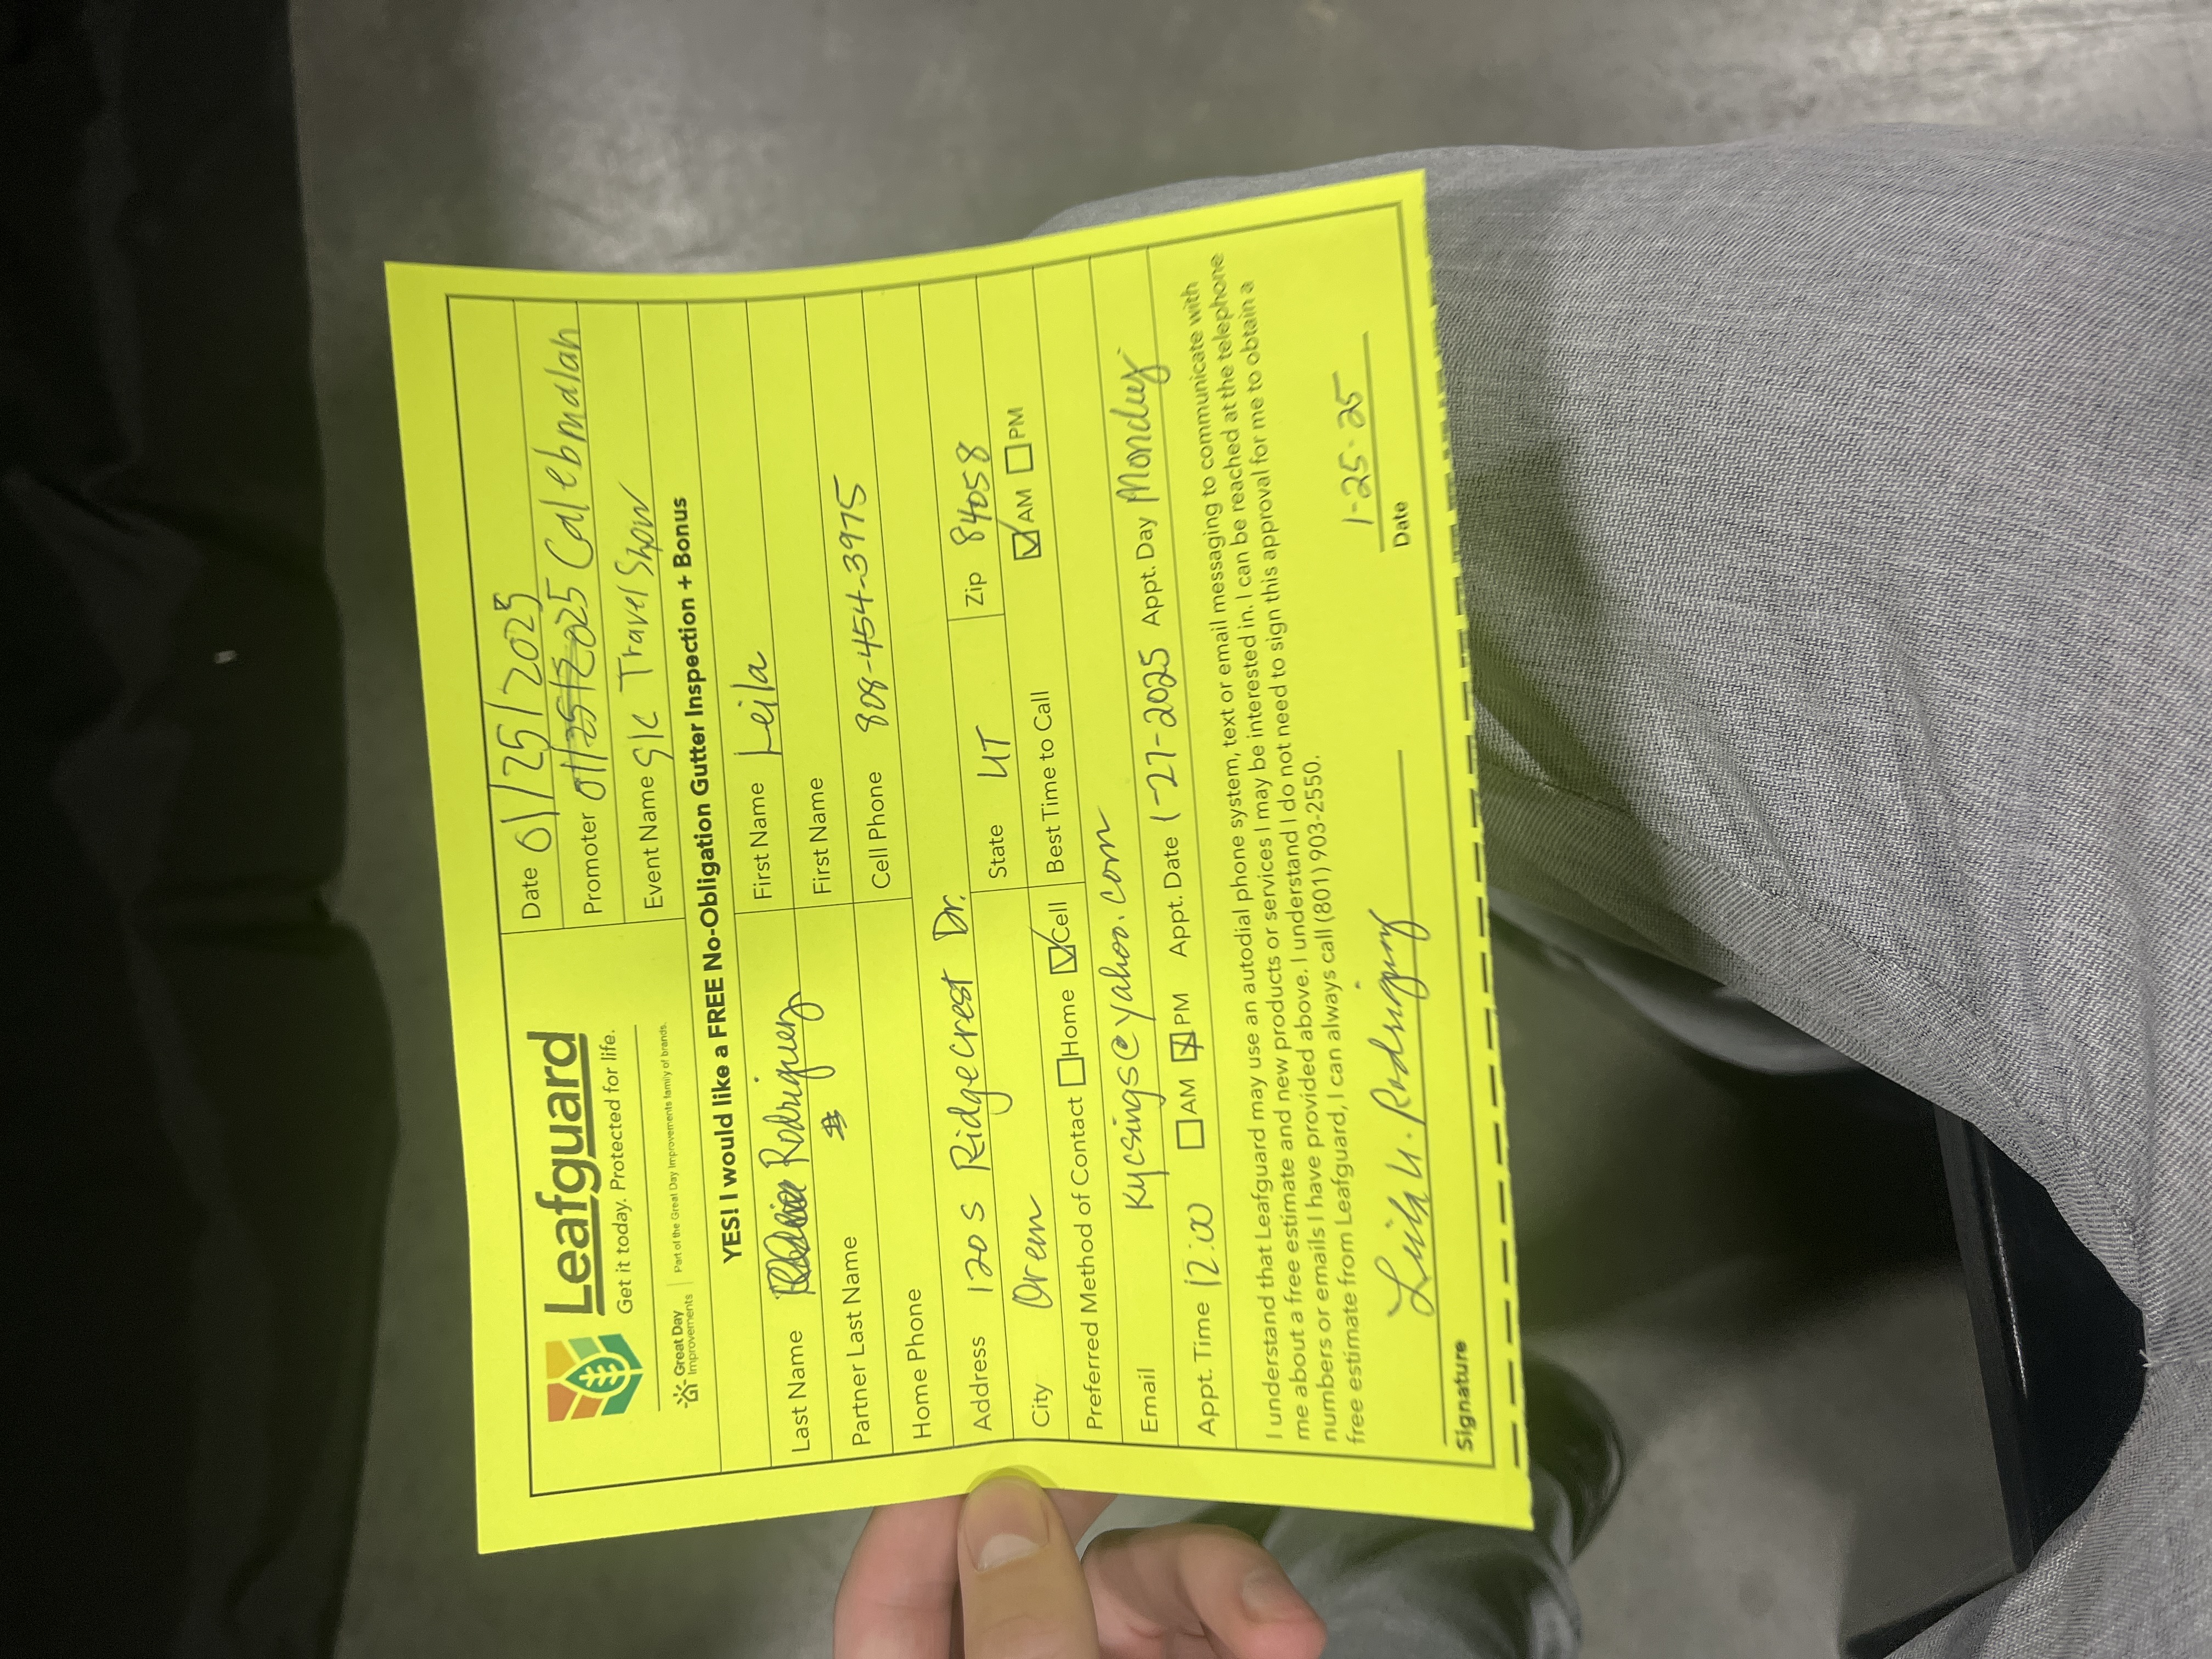 Leafguard
Get it today. Protected for life.
Great Day Improvements
Part of the Great Day Improvements family of brands.
Date 01/25/2025
Promoter 01/25/2025 Calebmalan
Event Name S/C Travel Show
YES! I would like a FREE No-Obligation Gutter Inspection + Bonus
Last Name Rodriguez
First Name Leila
Partner Last Name
First Name
Home Phone
Cell Phone 808-454-3975
Address 120 S Ridgecrest Dr.
City Orem
State UT
Zip 84058
Preferred Method of Contact Home Cell
Best Time to Call AM PM
Email kycsings@yahoo.com
Appt. Time 12:00 AM PM Appt. Date 1-27-2025 Appt. Day Monday
I understand that Leafguard may use an autodial phone system, text or email messaging to communicate with
me about a free estimate and new products or services I may be interested in. I can be reached at the telephone
numbers or emails I have provided above. I understand I do not need to sign this approval for me to obtain a
free estimate from Leafguard, I can always call (801) 903-2550.
Leila U. Rodriguez
1-25-25
Signature
Date